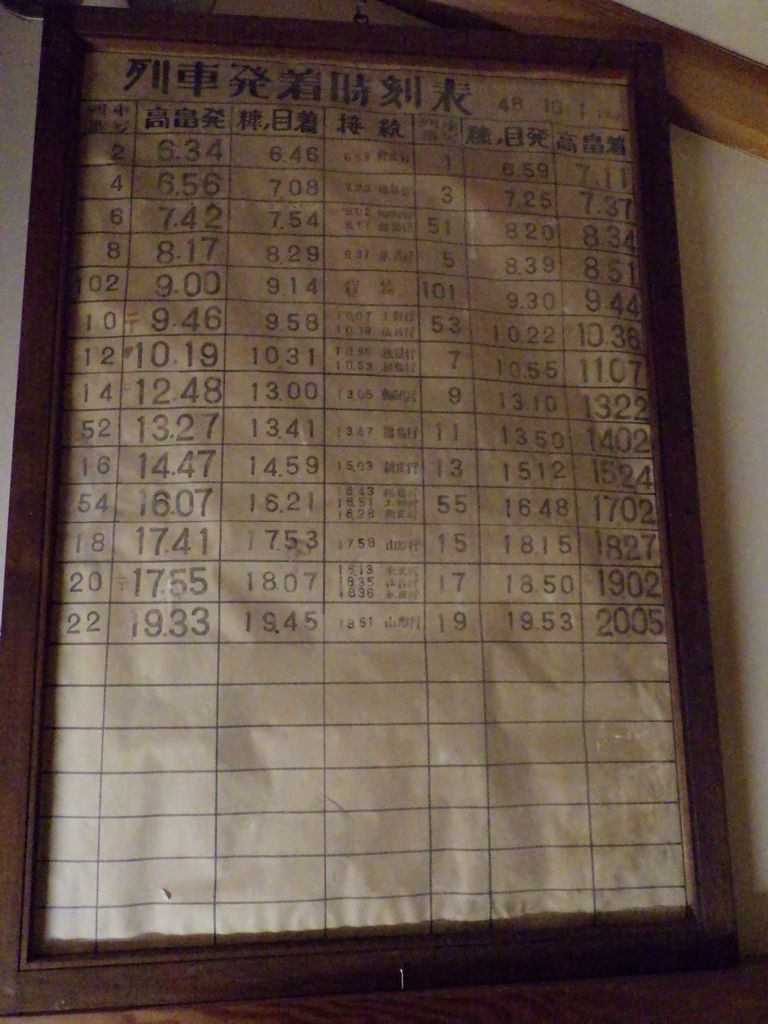 列車発着時刻表 48 10 1
列車番号 高畠発 糠ノ目着 接続 列車番号 糠ノ目発 高畠着
2 6.34 6.46 1 6.59 7.11
4 6.56 7.08 3 7.25 7.37
6 7.42 7.54 51 8.20 8.34
8 8.17 8.29 5 8.39 8.51
102 9.00 9.14 貨物 101 9.30 9.44
10 9.46 9.58 53 10.22 10.36
12 10.19 10.31 7 10.55 11.07
14 12.48 13.00 13.05 9 13.10 13.22
52 13.27 13.41 13.47 福島行 11 13.50 14.02
16 14.47 14.59 15.03 新庄行 13 15.12 15.24
54 16.07 16.21 55 16.48 17.02
18 17.41 17.53 17.58 山形行 15 18.15 18.27
20 17.55 18.07 17 18.50 19.02
22 19.33 19.45 19.51 山形行 19 19.53 20.05